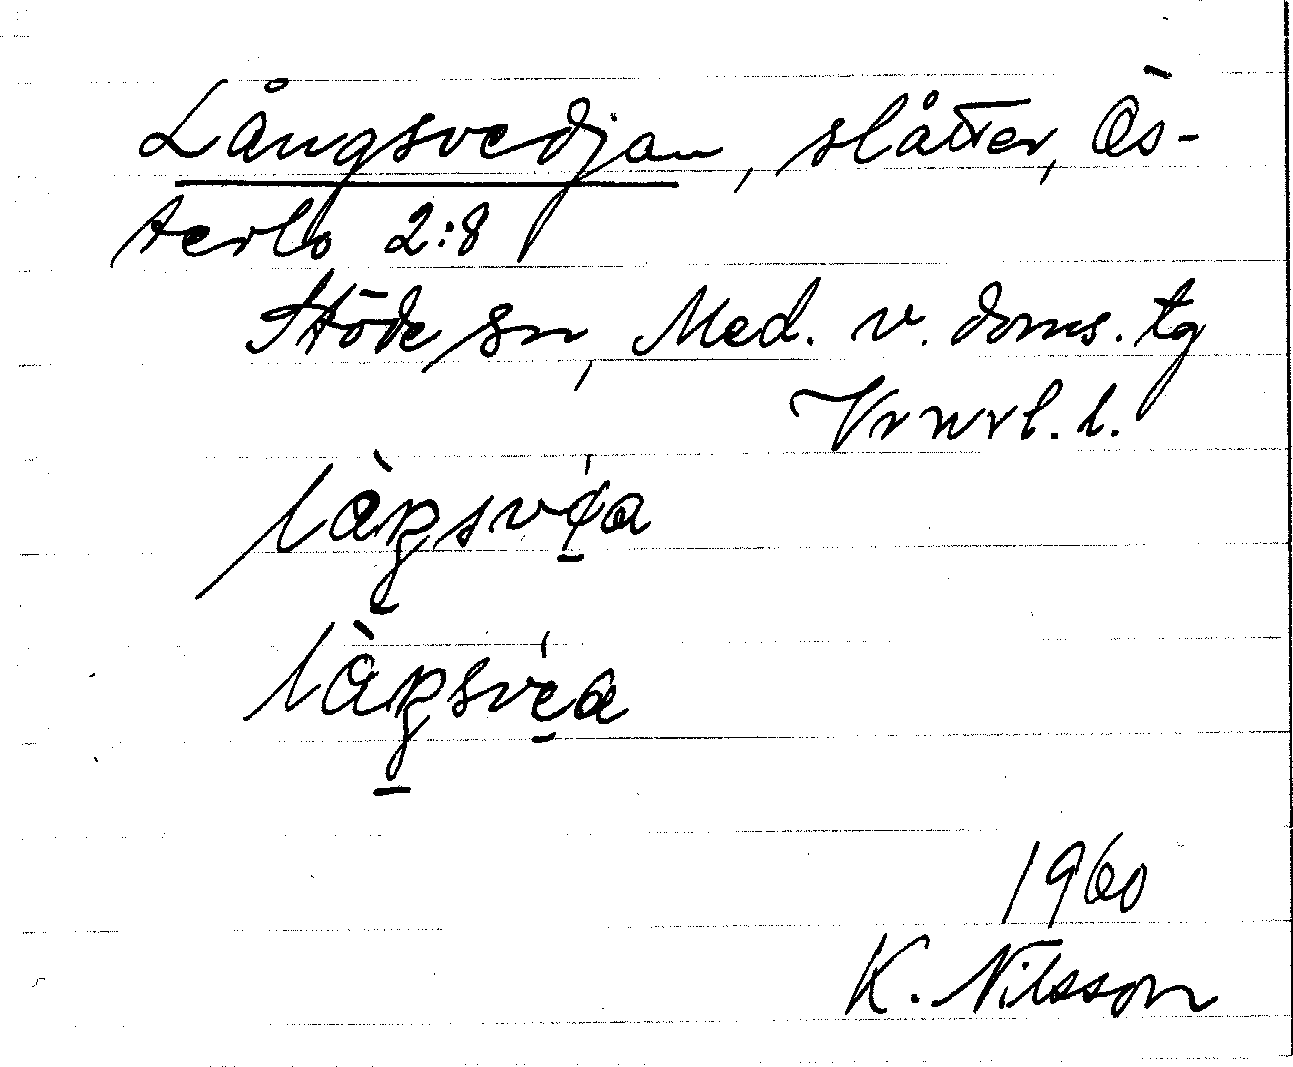 Långsvedjan, slåtter, Ös-
terlo 2:8
Stöde sn, Med. v. doms. tg
Vrnrl. l.
1960
K. Nilsson